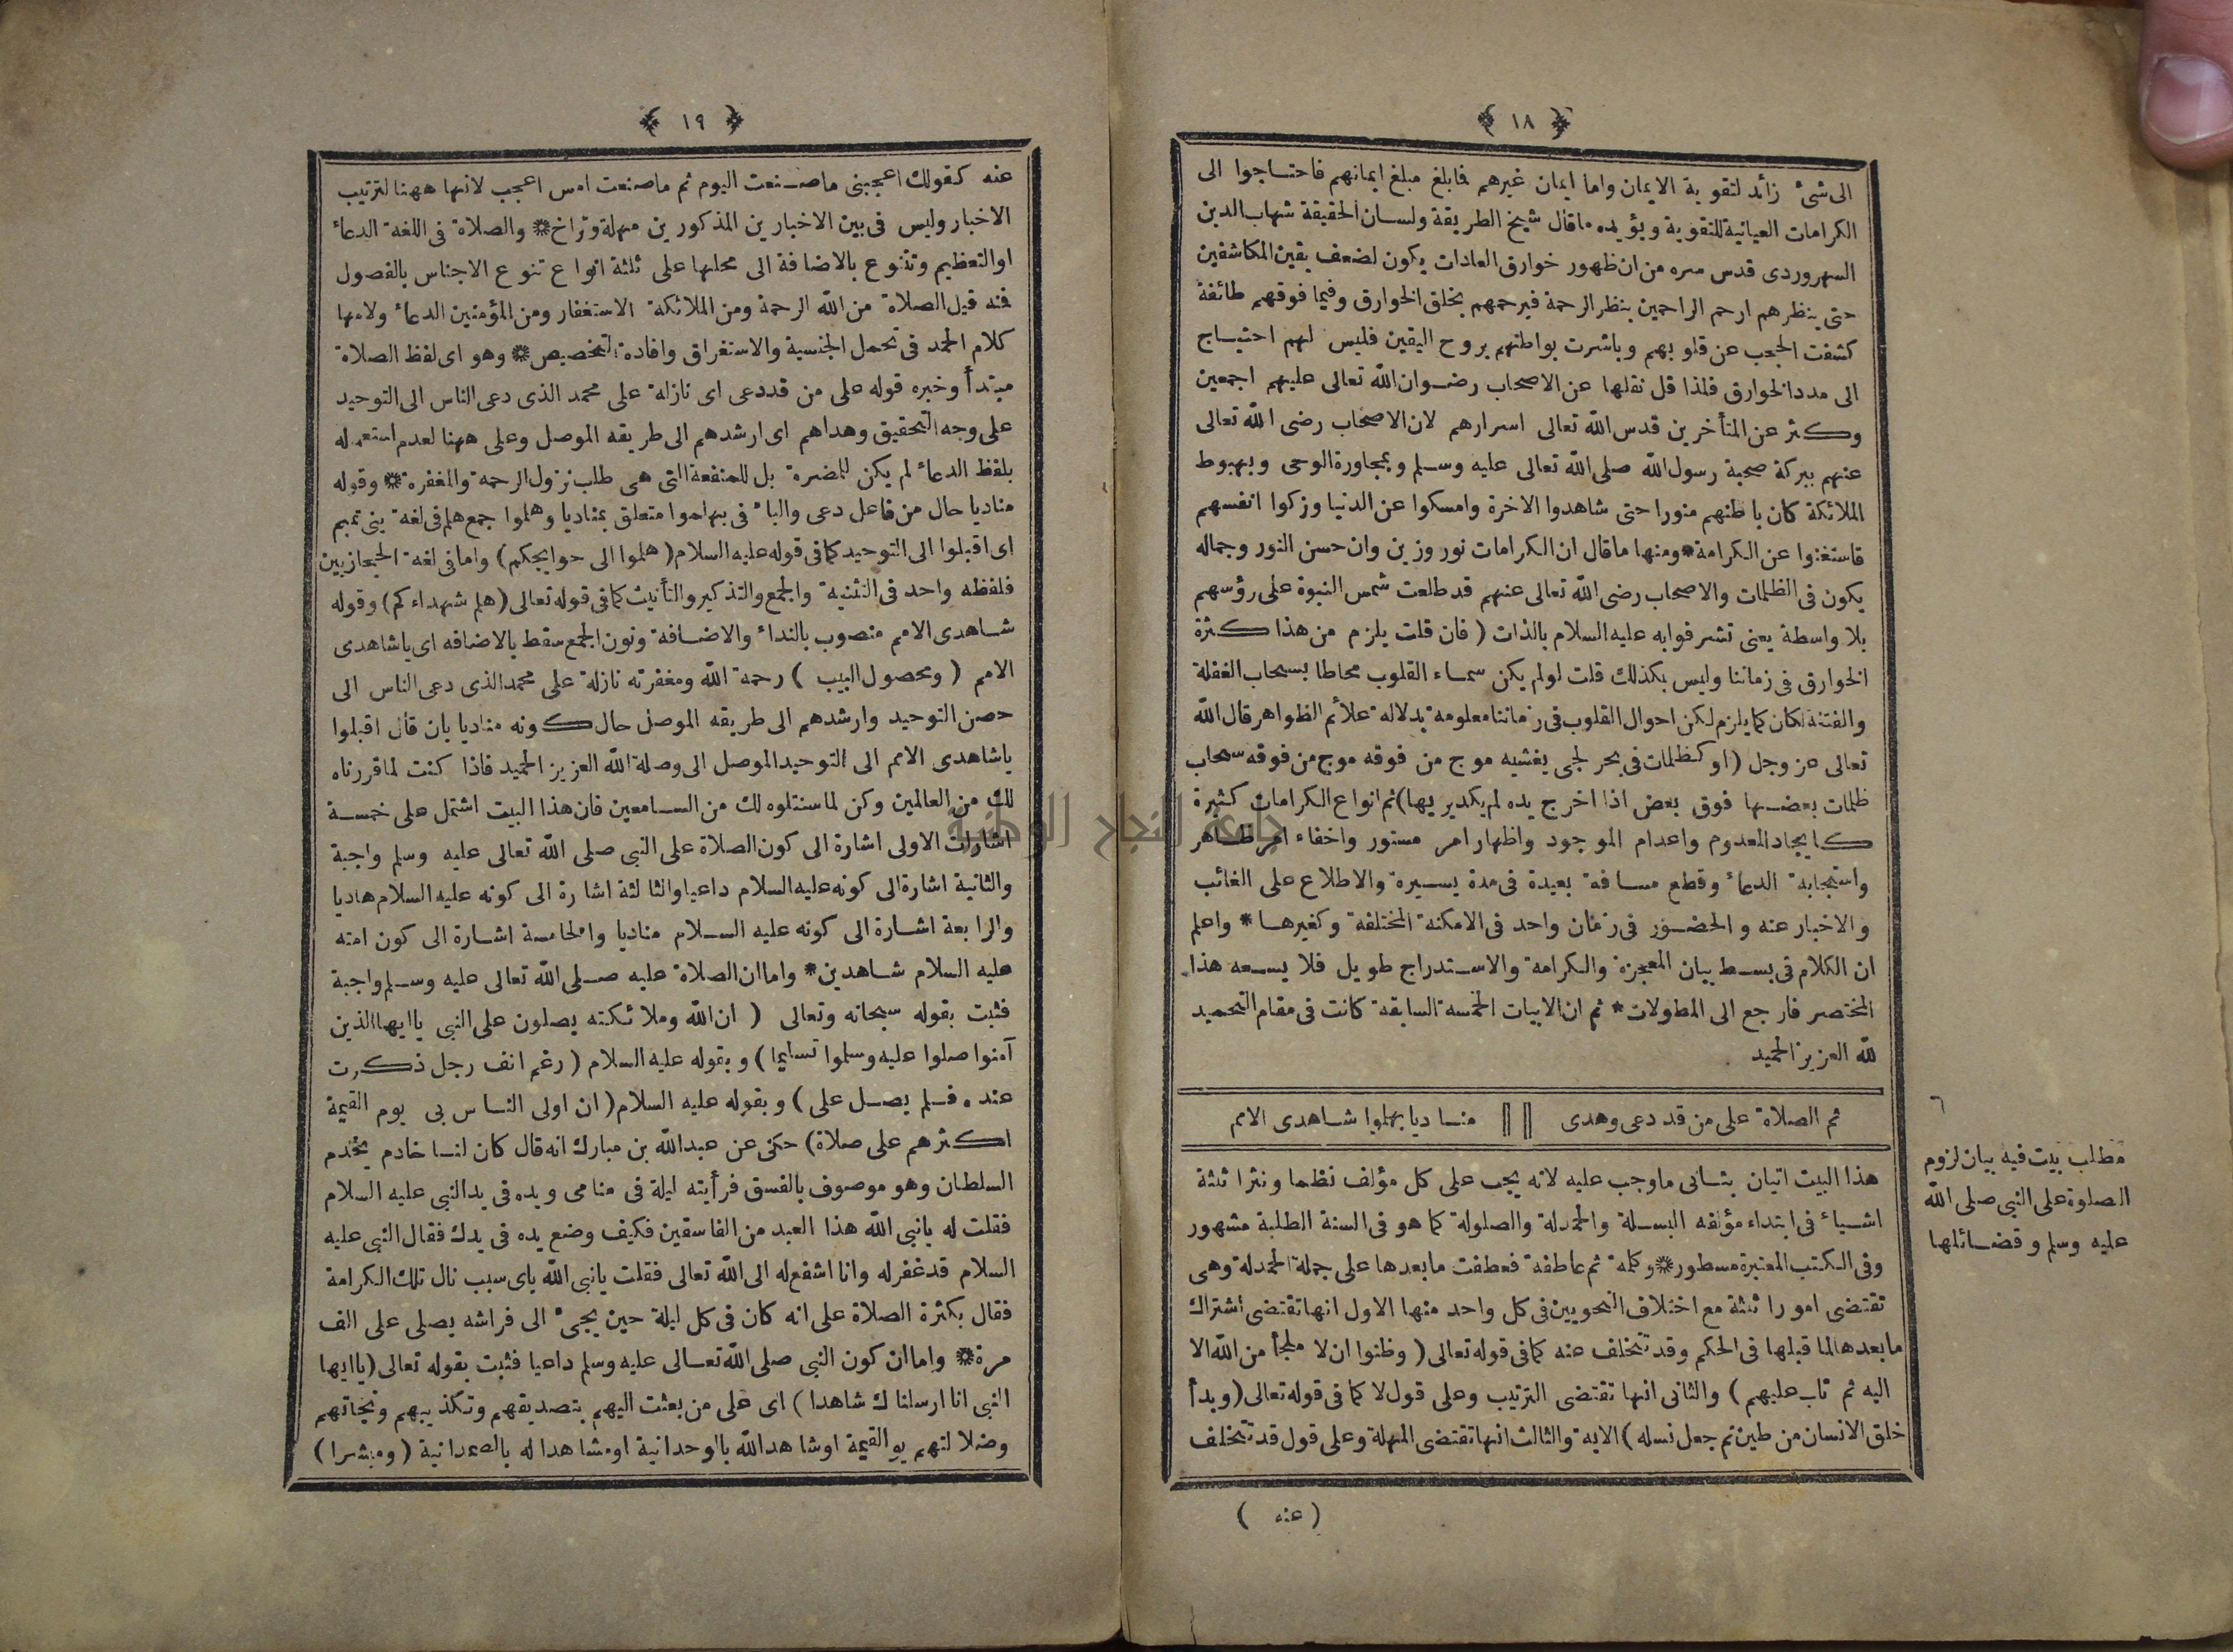 ﴿ ١٨ ﴾
الى شئ زائد لتقوية الايمان واما ايمان غيرهم فابلغ مبلغ ايمانهم فاحتاجوا الى
الكرامات العيانية للتقوية ويؤيده ماقال شيخ الطريقة ولسان الحقيقة شهاب الدين
السهروردى قدس سره من ان ظهور خوارق العادات يكون لضعف يقين المكاشفين
حتى ينظرهم ارحم الراحمين بنظر الرحمة فيرحمهم بخلق الخوارق وفيما فوقهم طائفة
كشفت الحجب عن قلوبهم وباشرت بواطنهم بروح اليقين فليس لهم احتياج
الى مدد الخوارق فلذا قل نقلها عن الاصحاب رضوان الله تعالى عليهم اجمعين
وكثر عن المتأخرين قدس الله تعالى اسرارهم لان الاصحاب رضى الله تعالى
عنهم ببركة صحبة رسول الله صلى الله تعالى عليه وسلم وبمجاورة الوحى وبهبوط
الملائكة كان باطنهم منورا حتى شاهدوا الاخرة وامسكوا عن الدنيا وزكوا انفسهم
فاستغنوا عن الكرامة* ومنها ماقال ان الكرامات نور وزين وان حسن النور وجماله
يكون فى الظلمات والاصحاب رضى الله تعالى عنهم قد طلعت شمس النبوة على رؤسهم
بلا واسطة يعنى تشرفوا به عليه السلام بالذات ( فان قلت يلزم من هذا كثرة
الخوارق فى زماننا وليس بكذلك قلت لو لم يكن سماء القلوب محاطا بسحاب الغفلة
والفتنة لكان كما يلزم لكن احوال القلوب فى زماننا معلومة بدلالة علائم الظواهر قال الله
تعالى عز وجل (او كظلمات فى بحر لجى يغشيه موج من فوقه موج من فوقه سحاب
ظلمات بعضها فوق بعض اذا اخرج يده لم يكد يريها) ثم انواع الكرامات كثيرة
كايجاد المعدوم واعدام الموجود واظهار امر مستور واخفاء امر ظاهر
واستجابة الدعاء وقطع مسافة بعيدة فى مدة يسيرة والاطلاع على الغائب
والاخبار عنه والحضور فى زمان واحد فى الامكنة المختلفة وكغيرها * واعلم
ان الكلام فى بسط بيان المعجزة والكرامة والاستدراج طويل فلا يسعه هذا
المختصر فارجع الى المطولات* ثم ان الابيات الخمسة السابقة كانت فى مقام التحميد
لله العزيز الحميد
ثم الصلاة على من قد دعى وهدى || مناديا بهلموا شاهدى الامم
هذا البيت اتيان بثانى ماوجب عليه لانه يجب على كل مؤلف نظما ونثرا ثلثة
اشياء فى ابتداء مؤلفه البسملة والحمدلة والصلولة كما هو فى السنة الطلبة مشهور
وفى الكتب المعتبرة مسطور* وكلمة ثم عاطفة فعطفت مابعدها على جملة الحمدلة وهى
تقتضى امورا ثلثة مع اختلاف النحويين فى كل واحد منها الاول انها تقتضى اشتراك
مابعدها لما قبلها فى الحكم وقد تتخلف عنه كما فى قوله تعالى ( وظنوا ان لا ملجأ من الله الا
اليه ثم تاب عليهم ) والثانى انها تقتضى الترتيب وعلى قول لا كما فى قوله تعالى (وبدأ
خلق الانسان من طين ثم جعل نسله ) الاية والثالث انها تقتضى المهلة وعلى قول قد تتخلف
( عنه )
٦
مطلب بيت فيه بيان لزوم
الصلوة على النبى صلى الله
عليه وسلم وفضائلها
﴿ ١٩ ﴾
عنه كقولك اعجبنى ماصنعت اليوم ثم ماصنعت امس اعجب لانها ههنا لترتيب
الاخبار وليس فى بين الاخبارين المذكورين مهلة وتراخ* والصلاة فى اللغة الدعاء
او التعظيم وتتنوع بالاضافة الى محلها على ثلثة انواع تنوع الاجناس بالفصول
فمنه قيل الصلاة من الله الرحمة ومن الملائكة الاستغفار ومن المؤمنين الدعاء ولامها
كلام الحمد فى تحمل الجنسية والاستغراق وافادة التخصيص* وهو اى لفظ الصلاة
مبتدأ وخبره قوله على من قد دعى اى نازلة على محمد الذى دعى الناس الى التوحيد
على وجه التحقيق وهداهم اى ارشدهم الى طريقه الموصل وعلى ههنا لعدم استعماله
بلفظ الدعاء لم يكن للمضرة بل للمنفعة التى هى طلب نزول الرحمة والمغفرة* وقوله
مناديا حال من فاعل دعى والباء فى بهلموا متعلق بمناديا وهلموا جمع هلم فى لغة بنى تميم
اى اقبلوا الى التوحيد كما فى قوله عليه السلام ( هلموا الى حوايجكم ) واما فى لغة الحجازيين
فلفظه واحد فى التثنية والجمع والتذكير والتأنيث كما فى قوله تعالى ( هلم شهداءكم ) وقوله
شاهدى الامم منصوب بالنداء والاضافة ونون الجمع سقط بالاضافه اى ياشاهدى
الامم ( ومحصول البيت ) رحمة الله ومغفرته نازلة على محمد الذى دعى الناس الى
حصن التوحيد وارشدهم الى طريقه الموصل حال كونه مناديا بان قال اقبلوا
ياشاهدى الامم الى التوحيد الموصل الى وصلة الله العزيز الحميد فاذا كنت لما قررناه
لك من العالمين وكن لما سنتلوه لك من السامعين فان هذا البيت اشتمل على خمسة
اشارات الاولى اشارة الى كون الصلاة على النبى صلى الله تعالى عليه وسلم واجبة
والثانية اشارة الى كونه عليه السلام داعيا والثالثة اشارة الى كونه عليه السلام هاديا
والرابعة اشارة الى كونه عليه السلام مناديا والخامسة اشارة الى كون امته
عليه السلام شاهدين* واما ان الصلاة عليه صلى الله تعالى عليه وسلم واجبة
فثبت بقوله سبحانه وتعالى ( ان الله وملائكته يصلون على النبى ياايها الذين
آمنوا صلوا عليه وسلموا تسليما ) وبقوله عليه السلام ( رغم انف رجل ذكرت
عنده فلم يصل على ) وبقوله عليه السلام ( ان اولى الناس بى يوم القيمة
اكثرهم على صلاة) حكى عن عبدالله بن مبارك انه قال كان لنا خادم يخدم
السلطان وهو موصوف بالفسق فرأيته ليلة فى منامى ويده فى يد النبى عليه السلام
فقلت له يانبى الله هذا العبد من الفاسقين فكيف وضع يده فى يدك فقال النبى عليه
السلام قد غفر له وانا اشفع له الى الله تعالى فقلت يانبى الله باى سبب نال تلك الكرامة
فقال بكثرة الصلاة على انه كان فى كل ليلة حين يجىء الى فراشه يصلى على الف
مرة* واما ان كون النبى صلى الله تعالى عليه وسلم داعيا فثبت بقوله تعالى (ياايها
النبى انا ارسلناك شاهدا ) اى على من بعثت اليهم بتصديقهم وتكذيبهم ونجاتهم
وضلالتهم يوالقيمة اوشاهدالله بالوحدانية اومشاهدا له بالصمدانية ( ومبشرا )
جامعة النجاح الوطنية